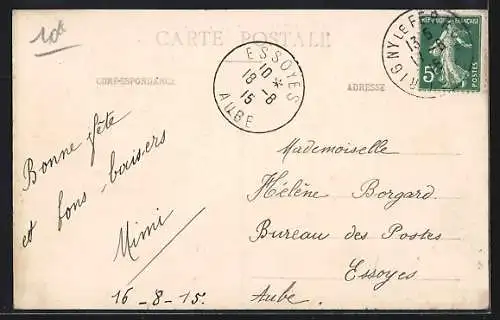 10f
CARTE POSTALE
CORRESPONDANCE
ADRESSE
ESSOYES
10 *
18 - 8
15
AUBE
RIGNY LE FER
13 5
5c
POSTES
Bonne fête
et bons baisers
Mimi
16-8-15.
Mademoiselle
Hélène Borgard
Bureau des Postes
Essoyes
Aube.